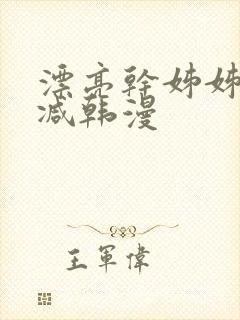 漂亮幹姊姊
减韩漫
王軍偉